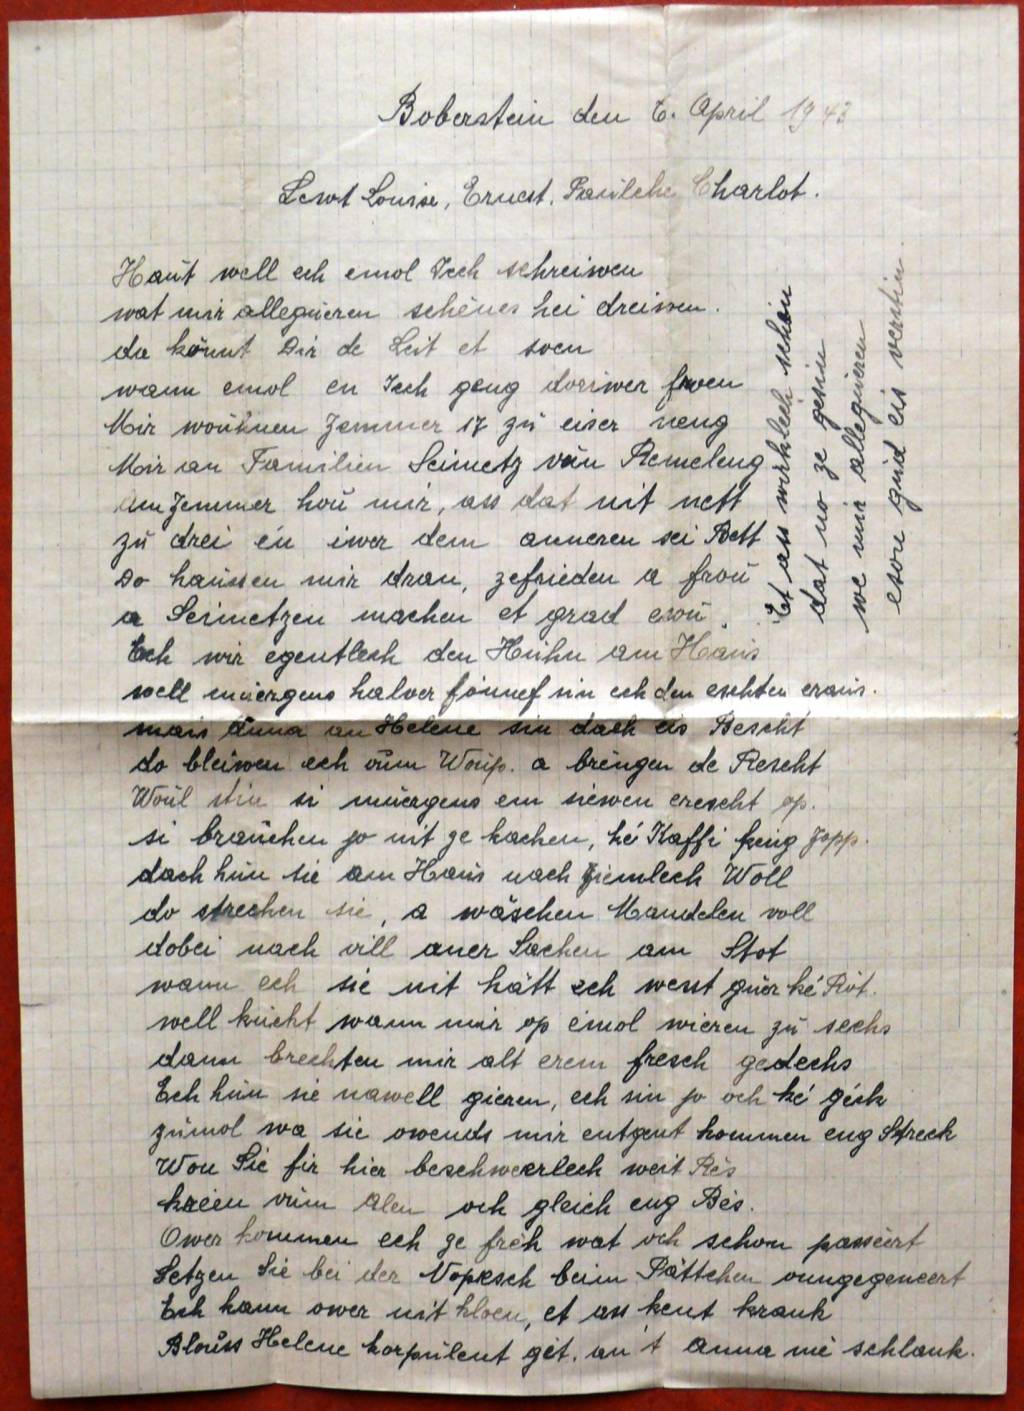 Boberstein den 6. April 1943
Lewt Louise, Ernest, Paulche Charlot.
Haut well ech emol Iech schreiwen
wat mir allegueren schènes hei dreiwen.
da könnt Dir de Leit et soen
wann emol en Iech geng doriwer froen
Mir wouhnen Zemmer 17 zu eiser neng
Mir an Familien Seimetz vun Remeleng
Am Zemmer hou mir, ass dat nit nett
zu drei én iwer dem anneren sei Bett
Do haussen mir dran, zefrieden a frou
a Seimetzen machen et grad esou.
Ech wir egentlech den Huhn am Haus
well muergens halver fönnef sin ech den eschten eraus.
mais Anna an Helene sin dach eis Bescht
do bleiwen ech vum Woup. a brengen de Rescht
Woul stin si muergens em siewen erescht op.
si brauchen jo nit ze kachen, ké Kaffi keng Zopp.
dach hun sie am Haus nach ziemlech Woll
do strechen sie, a wäschen Mandelen voll
dobei nach vill aner Sachen am Stot
wann ech sie nit hätt ech wesst guer ké Rot.
well kucht wann mir op eimol wieren zu sechs
dann brechten mir alt erem fresch gedechs
Ech hun sie nawell gieren, ech sin jo och ké géck
zumol wa sie owends mir entgent kommen eng Streck
Wou Sie fir hier beschweerlech weit Rès
kréien vum Alen och gleich eng Bés.
Ower kommen ech ze fréh wat och schon passéert
Setzen Sie bei der Nopesch beim Pättchen ongegeneert
Ech kann ower nit kloen, et ass kent krank
Blouss Helene korpulent gét. an 't Anna mé schlank.
Et ass wirklech schein
dat no ze gesin
we mir allegueren
esou gud eis verstin